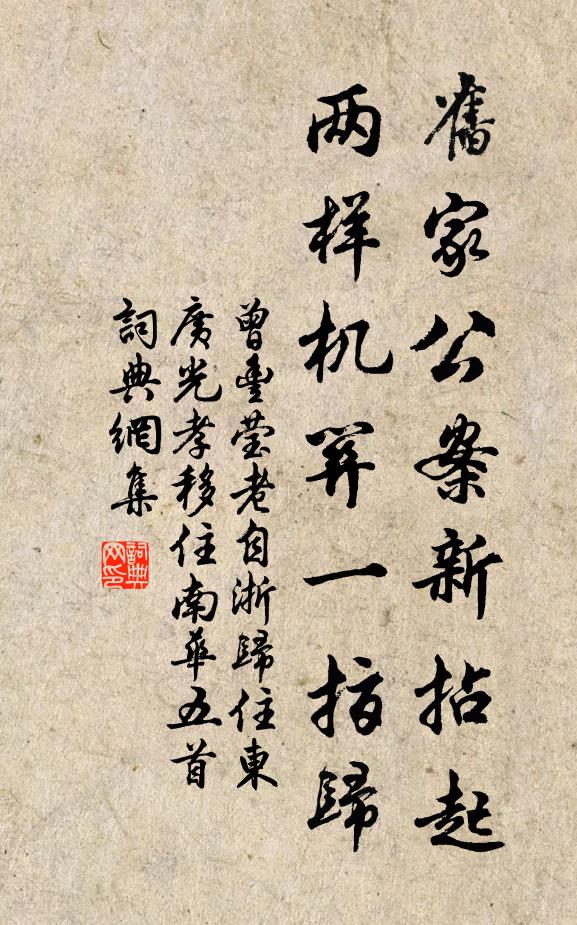 舊家公案新拈起
两样机筭一指歸
曾豊莹老自浙歸住東
廣光孝移住南華五首
詞典網集
詞典
网印